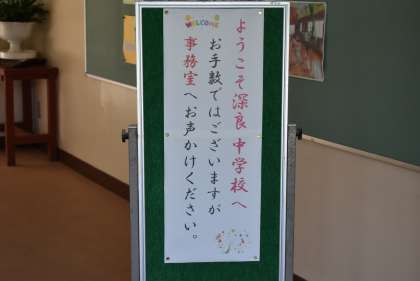 WELCOME
ようこそ深良中学校へ
お手数ではございますが
事務室へお声かけください。